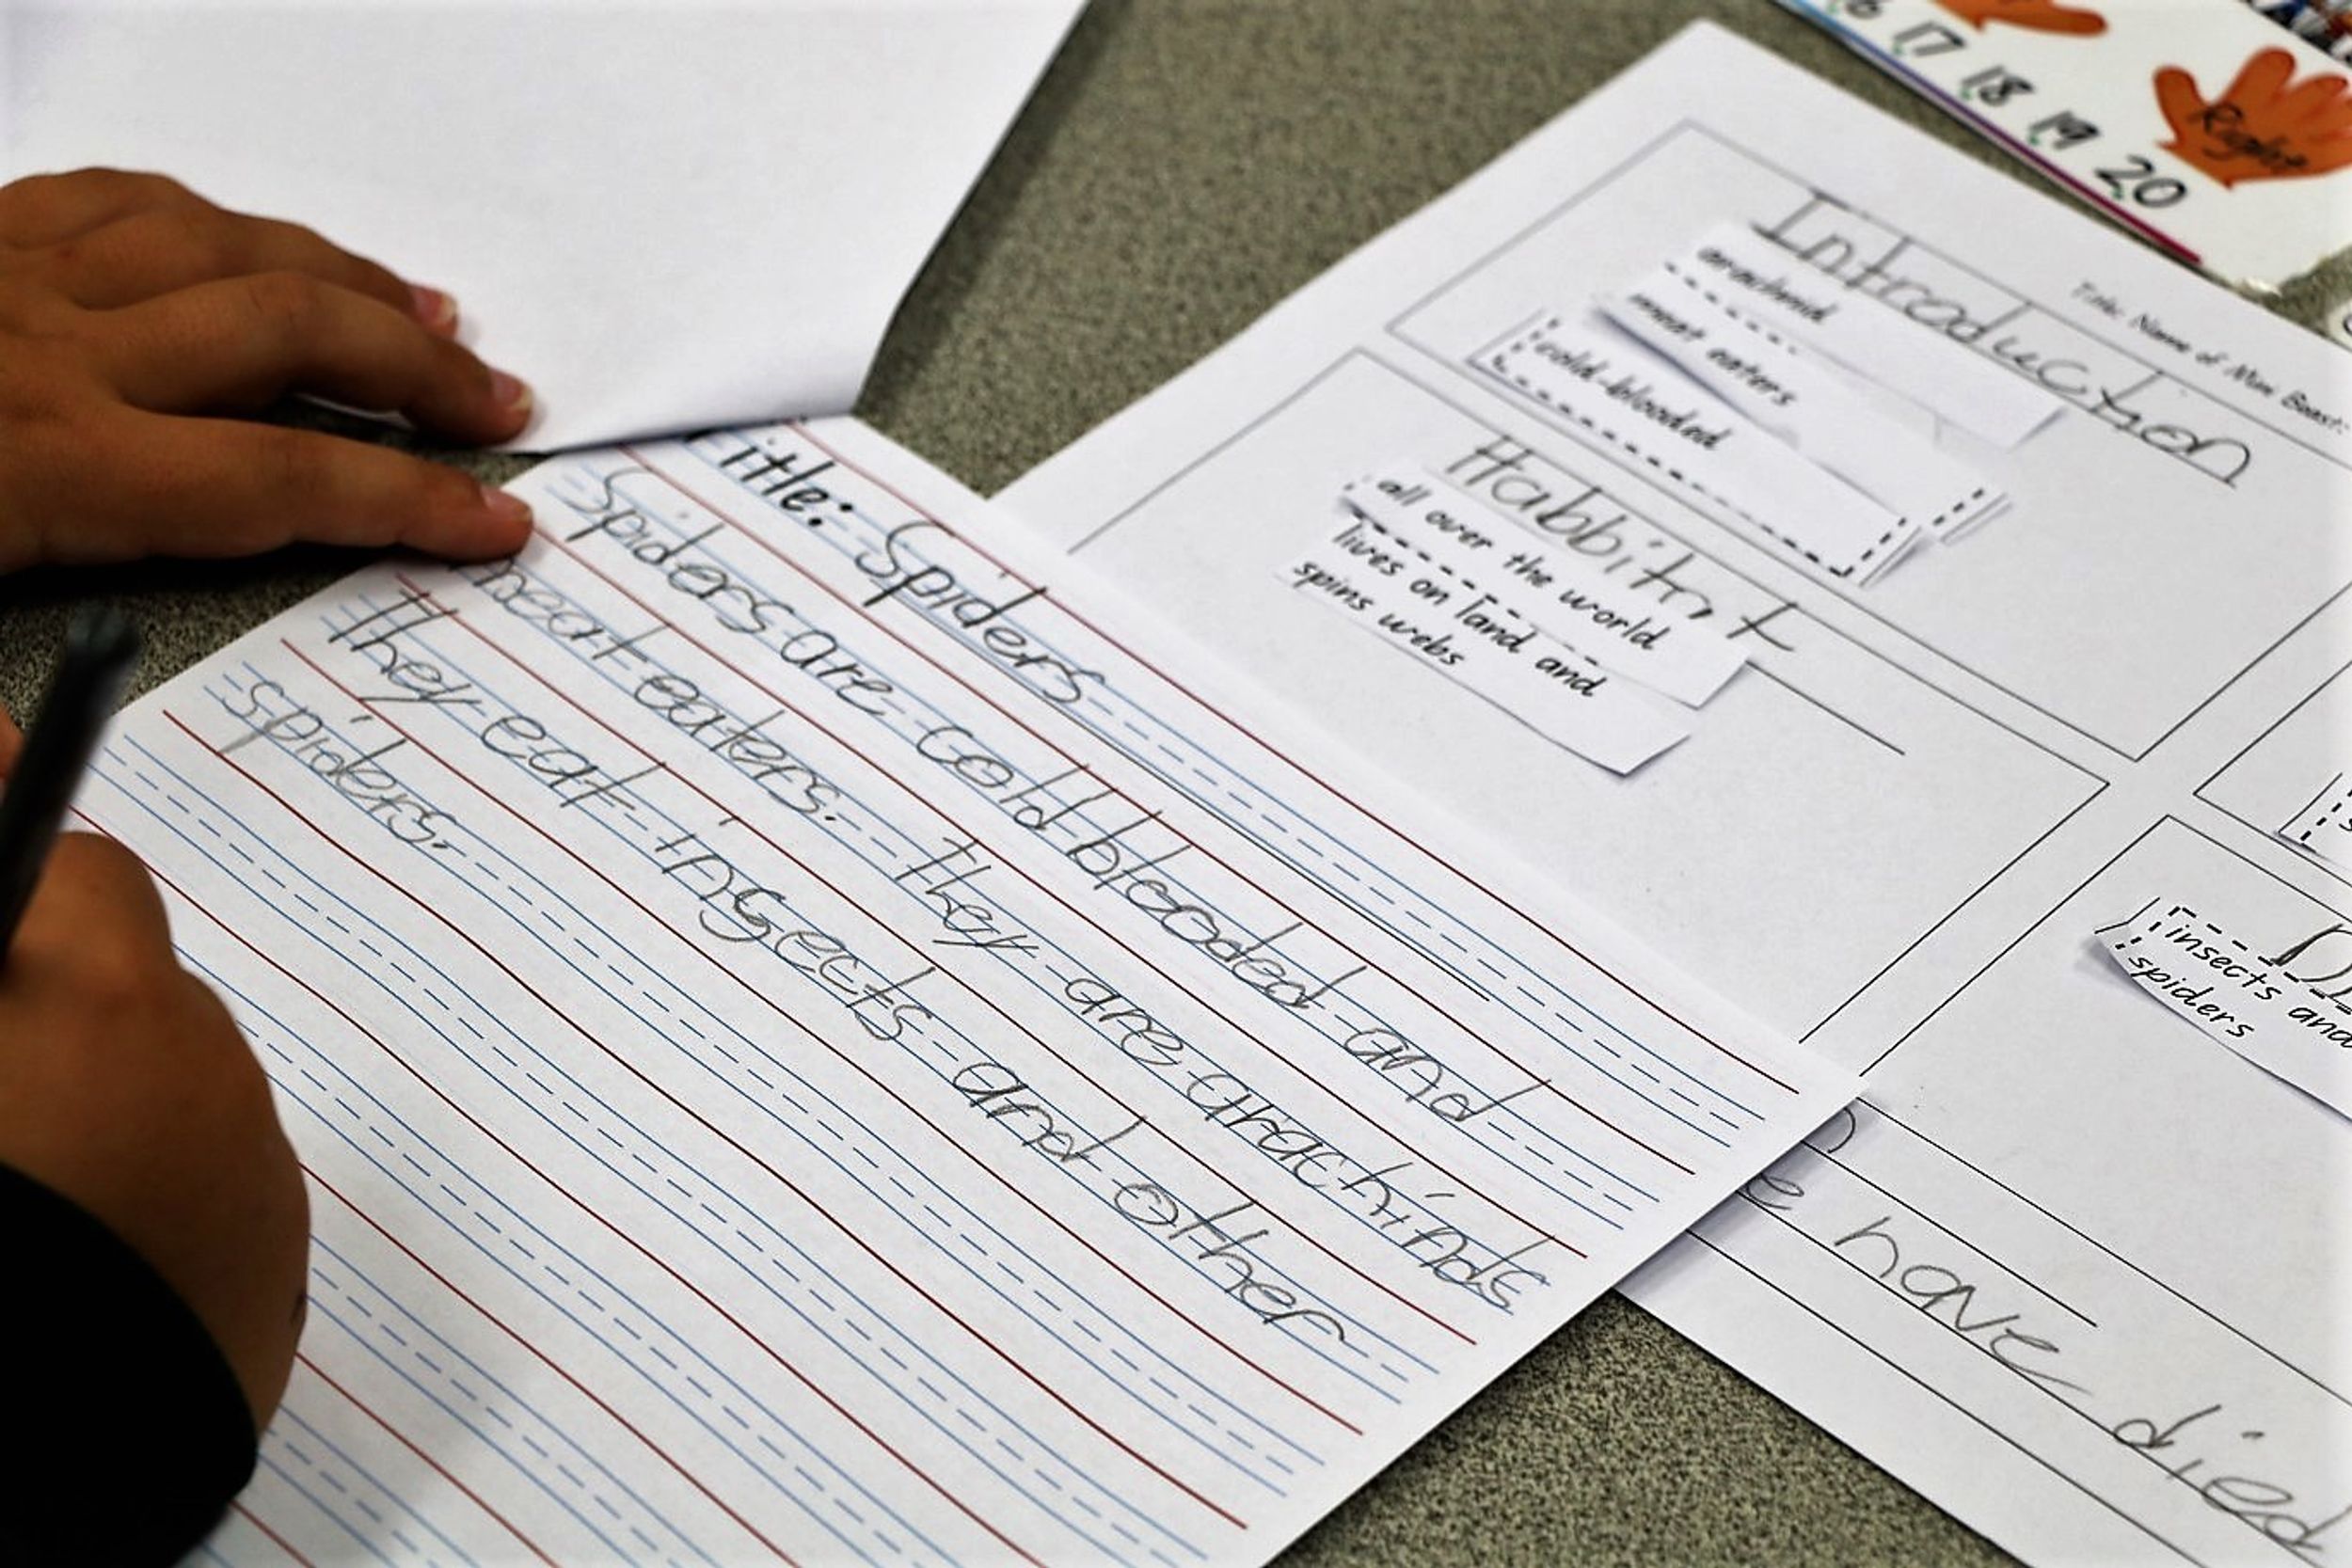 16 17 18 19 20
Right
Title: Name of Mini Beast:
Introduction
arachnid
meat eaters
cold-blooded
Habbitnt
all over the world
lives on land and
spins webs
insects and
spiders
itle: Spiders
Spiders are cold blooded and
meat eaters. They are arachinds
They eat insects and other
spiders.
have died